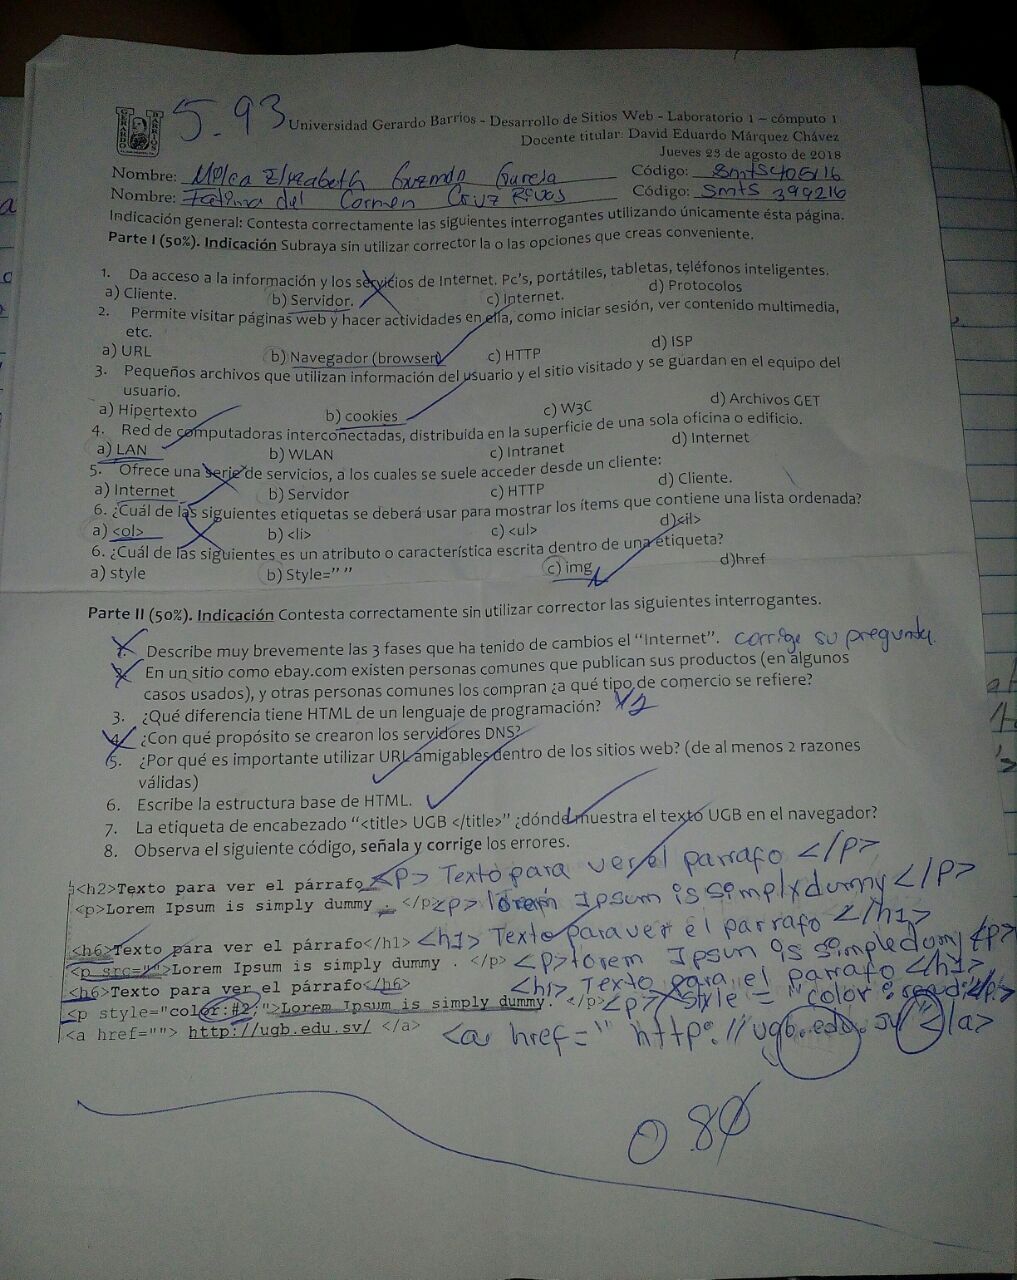 5.93
Universidad Gerardo Barrios - Desarrollo de Sitios Web - Laboratorio 1 – cómputo 1
Docente titular: David Eduardo Márquez Chávez
Jueves 23 de agosto de 2018
Nombre: Melca Elizabeth Guzmán Garcia Código: Smts406116
Nombre: Fatima del Carmen Cruz Rivas Código: Smts 399216
Indicación general: Contesta correctamente las siguientes interrogantes utilizando únicamente ésta página.
Parte I (50%). Indicación Subraya sin utilizar corrector la o las opciones que creas conveniente.
1. Da acceso a la información y los servicios de Internet. Pc's, portátiles, tabletas, teléfonos inteligentes.
a) Cliente. b) Servidor. c) Internet. d) Protocolos
2. Permite visitar páginas web y hacer actividades en ella, como iniciar sesión, ver contenido multimedia,
etc.
a) URL b) Navegador (browser) c) HTTP d) ISP
3. Pequeños archivos que utilizan información del usuario y el sitio visitado y se guardan en el equipo del
usuario.
a) Hipertexto b) cookies c) W3C d) Archivos GET
4. Red de computadoras interconectadas, distribuida en la superficie de una sola oficina o edificio.
a) LAN b) WLAN c) Intranet d) Internet
5. Ofrece una serie de servicios, a los cuales se suele acceder desde un cliente:
a) Internet b) Servidor c) HTTP d) Cliente.
6. ¿Cuál de las siguientes etiquetas se deberá usar para mostrar los ítems que contiene una lista ordenada?
a) <ol> b) <li> c) <ul> d) <il>
6. ¿Cuál de las siguientes es un atributo o característica escrita dentro de una etiqueta?
a) style b) Style=” ” c) img d)href
Parte II (50%). Indicación Contesta correctamente sin utilizar corrector las siguientes interrogantes.
1. Describe muy brevemente las 3 fases que ha tenido de cambios el “Internet”. corrige su pregunta.
2. En un sitio como ebay.com existen personas comunes que publican sus productos (en algunos
casos usados), y otras personas comunes los compran ¿a qué tipo de comercio se refiere?
3. ¿Qué diferencia tiene HTML de un lenguaje de programación?
4. ¿Con qué propósito se crearon los servidores DNS?
5. ¿Por qué es importante utilizar URL amigables dentro de los sitios web? (de al menos 2 razones
válidas)
6. Escribe la estructura base de HTML.
7. La etiqueta de encabezado “<title> UGB </title>” ¿dónde muestra el texto UGB en el navegador?
8. Observa el siguiente código, señala y corrige los errores.
<h2>Texto para ver el párrafo <p> Texto para ver el parrafo </p>
<p>Lorem Ipsum is simply dummy . </p> <p> lorem Ipsum is simply dumny </p>
<h6>Texto para ver el párrafo</h1> <h1> Texto para ver el parrafo </h1>
<p src="">Lorem Ipsum is simply dummy . </p> <p> lorem Ipsum is simple dumy <p>
<h6>Texto para ver el párrafo</h6> <h1> Texto para el parrafo </h1>
<p style="color:#2;">Lorem Ipsum is simply dummy. </p> <p> style = "color:
<a href=""> http://ugb.edu.sv/ </a> <a href=" http://ugb.edu.sv "</a>
0.80